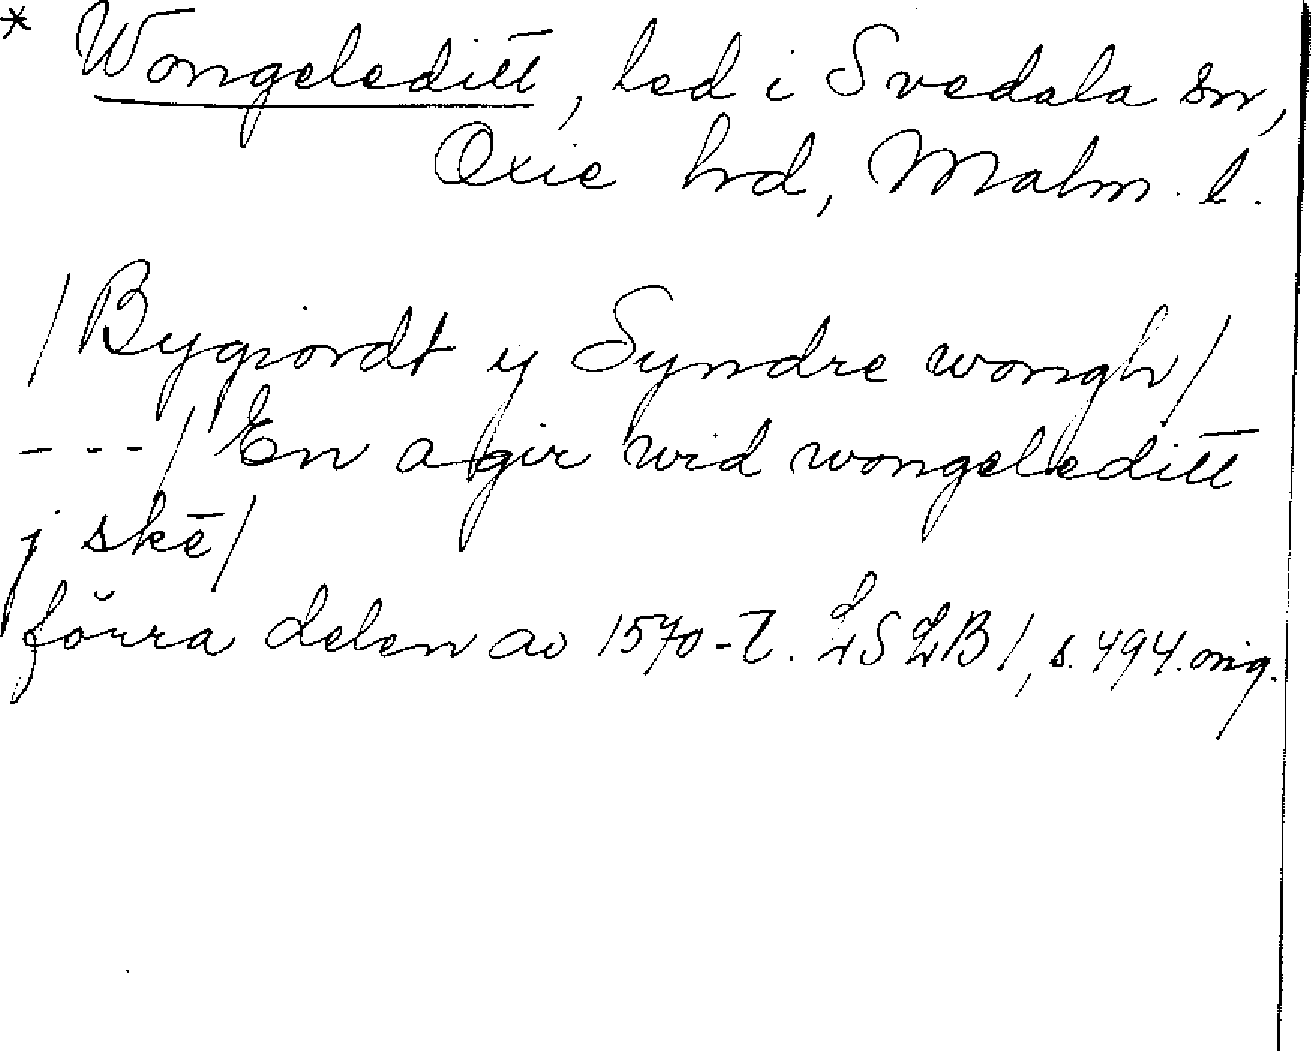 * Wongeleditt, led i Svedala sn,
Oxie hrd, Malm. l.
/Bygiordt ij Syndre wongh/
---/ En agir wid wongeleditt
j skē/
förra delen av 1570-t. LSLB1, s. 494. orig.